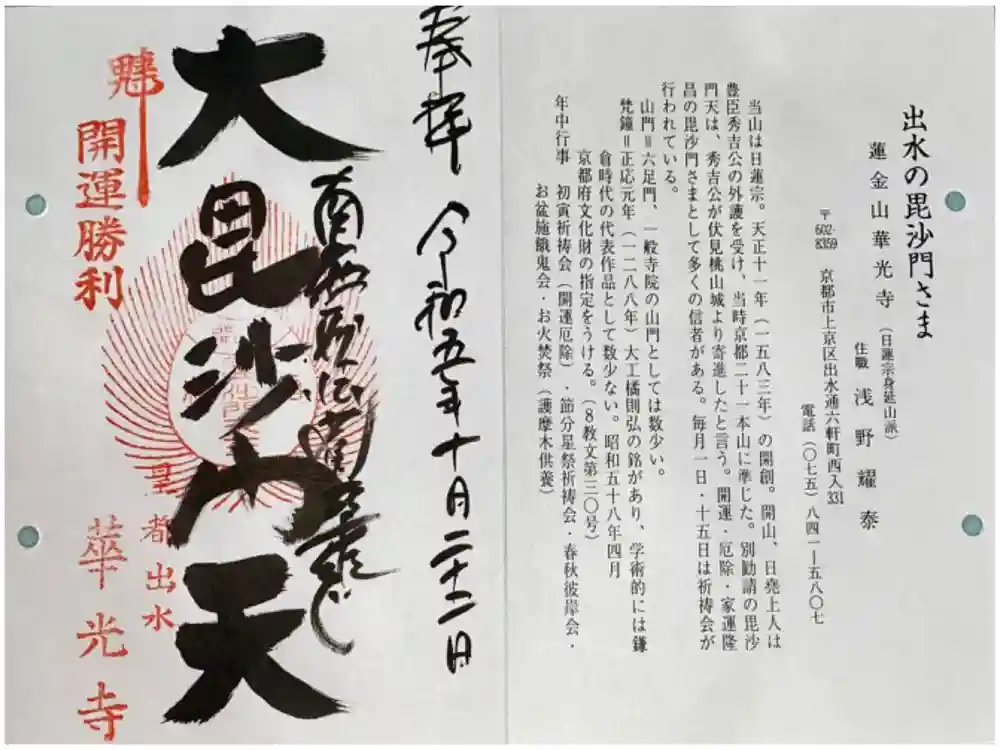 出水の毘沙門さま
蓮金山華光寺(日蓮宗身延山派)
住職 浅野耀泰
〒602-8359 京都市上京区出水通六軒町西入331
電話(〇七五)八四一ー五八〇七
当山は日蓮宗。天正十一年(一五八三年)の開創。開山、日堯上人は
豊臣秀吉公の外護を受け、当時京都二十一本山に準じた。別勧請の毘沙
門天は、秀吉公が伏見桃山城より寄進したと言う。開運・厄除・家運隆
昌の毘沙門さまとして多くの信者がある。毎月一日・十五日は祈祷会が
行われている。
山門=六足門、一般寺院の山門としては数少い。
梵鐘=正応元年(一二八八年)大工橘則弘の銘があり、学術的には鎌
倉時代の代表作品として数少ない。昭和五十八年四月
京都府文化財の指定をうける。(8教文第三〇号)
年中行事 初寅祈祷会(開運厄除)・節分星祭祈祷会・春秋彼岸会・
お盆施餓鬼会・お火焚祭(護摩木供養)
奉拝 令和五年十月二十二日
大毘沙門天
魁
開運勝利
皇都出水
華光寺